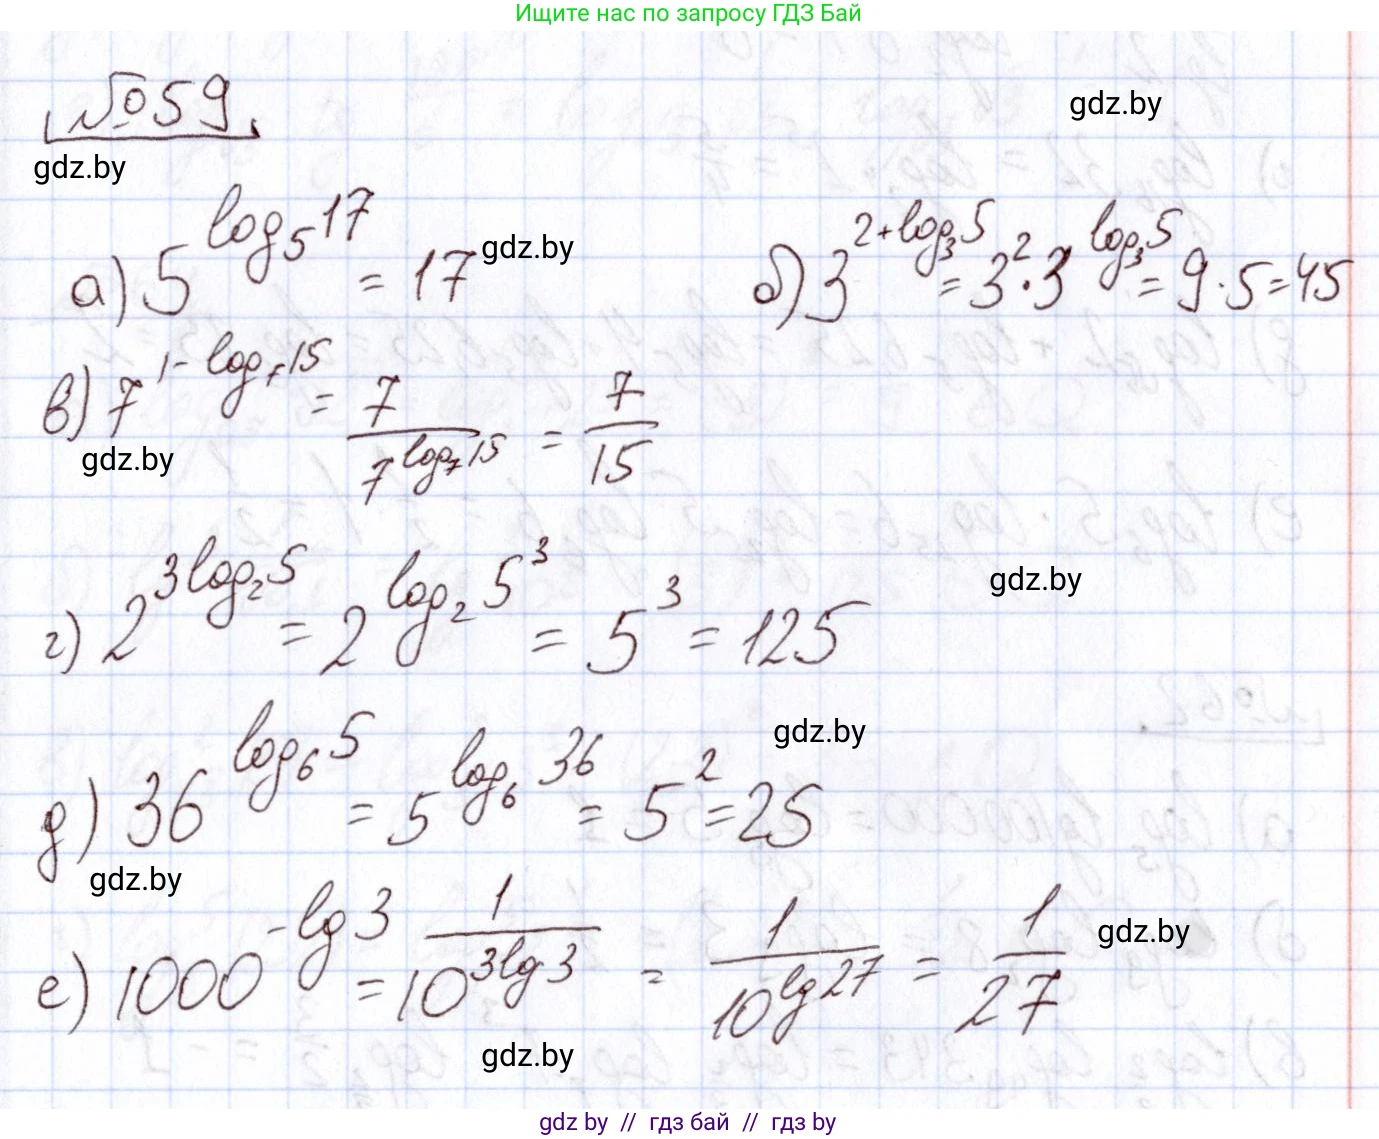 Ищите нас по запросу ГДЗ Бай
№59
gdz.by
gdz.by
а) 5^{log_5 17} = 17
gdz.by
б) 3^{2+log_3 5} = 3^2 · 3^{log_3 5} = 9 · 5 = 45
в) 7^{1-log_7 15} = 7/7^{log_7 15} = 7/15
gdz.by
г) 2^{3log_2 5} = 2^{log_2 5^3} = 5^3 = 125
gdz.by
д) 36^{log_6 5} = 5^{log_6 36} = 5^2 = 25
gdz.by
gdz.by
е) 1000^{-lg 3} = 1/10^{3lg 3} = 1/10^{lg 27} = 1/27
gdz.by
gdz.by
gdz.by // гдз бай // гдз by